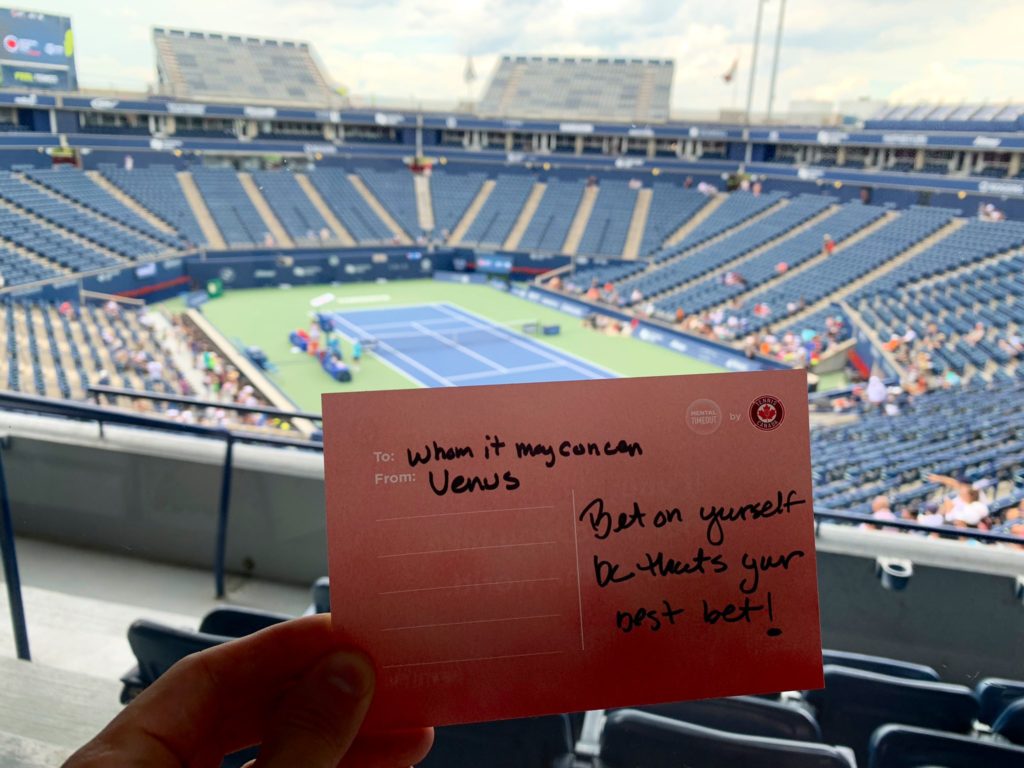 MENTAL TIMEOUT
by
TENNIS CANADA
To: Whom it may concen
From: Venus
Bet on yurself
bc that's yur
best bet!